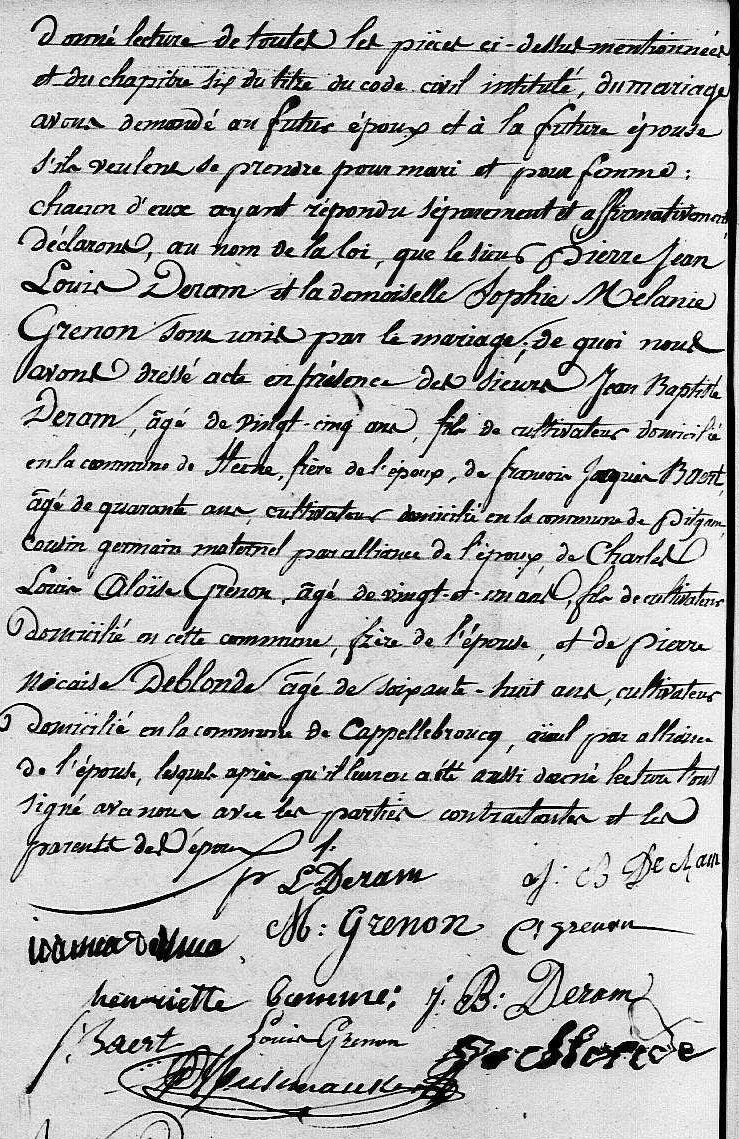 donné lecture de toutes les pièces ci-dessus mentionnées
et du chapitre six du titre du code civil intitulé, du mariage
avons demandé au futur époux et à la future épouse
s'ils veulent se prendre pour mari et pour femme :
chacun d'eux ayant répondu séparement et affirmativement,
déclarons, au nom de la loi, que le sieur Pierre Jean
Louis Deram et la demoiselle Sophie Melanie
Grenon sont unis par le mariage ; de quoi nous
avons dressé acte en présence des sieurs Jean Baptiste
Deram, âgé de vingt-cinq ans, fils de cultivateur domicilié
en la commune de , frère de l'époux, de francois Jaques Baert,
âgé de quarante ans, cultivateur domicilié en la commune de pitgam,
cousin germain maternel par alliance de l'époux, de Charles
Louis Aloïse Grenon, âgé de vingt-et-un ans, fils de cultivateur
domicilié en cette commune, frère de l'épouse, et de pierre
nicaise Deblonde âgé de soixante-huit ans, cultivateur
domicilié en la commune de Cappellebroucq, aïeul par alliance
de l'épouse, lesquels après qu'il leur en a été aussi donné lecture l'ont
signé avec nous avec les parties contractantes et les
parents des époux ./.
p L Deram
M : Grenon Cs grenon
henriette j : B : Deram
Baert Louis Grenon